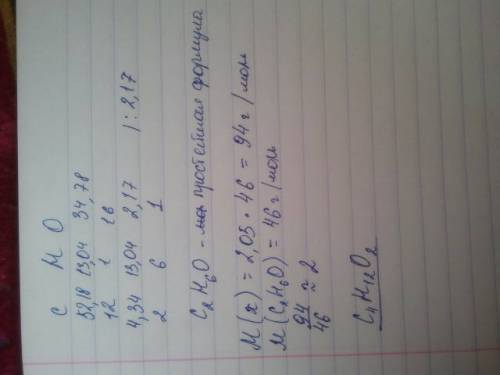 C H O
52,18 13,04 34,78
12 1 16
4,34 13,04 2,17 | : 2,17
2 6 1
C₂H₆O - простейшая формула
M(x) = 2,05 • 46 = 94 г/моль
M(C₂H₆O) = 46 г/моль
94/46 ≈ 2
C₄H₁₂O₂